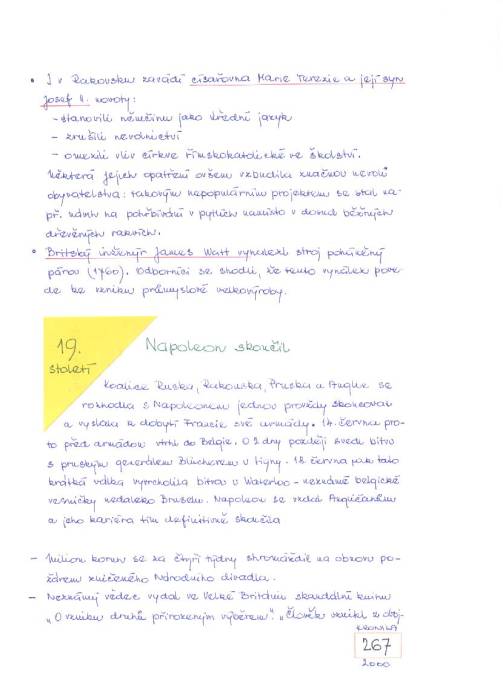 • I v Rakousku zavádí císařovna Marie Terezie a její syn
Josef II. novoty:
- stanovili němčinu jako úřední jazyk
- zrušili nevolnictví
- omezili vliv církve římskokatolické ve školství.
Některá jejich opatření ovšem vzbudila značnou nevoli
obyvatelstva: takovým nepopulárním projektem se stal na-
př. návrh na pohřbívání v pytlích namísto v dosud běžných
dřevěných rakvích.
• Britský inženýr James Watt vynalezl stroj poháněný
párou (1760). Odborníci se shodli, že tento vynález pove-
de ke vzniku průmyslové velkovýroby.
19.
století
Napoleon skončil
Koalice Ruska, Rakouska, Pruska a Anglie se
rozhodla s Napoleonem jednou provždy skoncovat
a vyslala k dobytí Francie své armády. 14. června pro-
to před armádou vtrhl do Belgie. O 2 dny později svedl bitvu
s pruským generálem Blücherem u Ligny. 18. června pak tato
krátká válka vyvrcholila bitvou u Waterloo - neznámé belgické
vesničky nedaleko Bruselu. Napoleon se vzdal Angličanům
a jeho kariéra tím definitivně skončila
- Milion korun se za čtyři týdny shromáždil na obnovu po-
žárem zničeného Národního divadla.
- Neznámý vědec vydal ve Velké Británii skandální knihu
„O vzniku druhů přirozeným výběrem". „Člověk vznikl z opi-
KRONIKA
267
2000